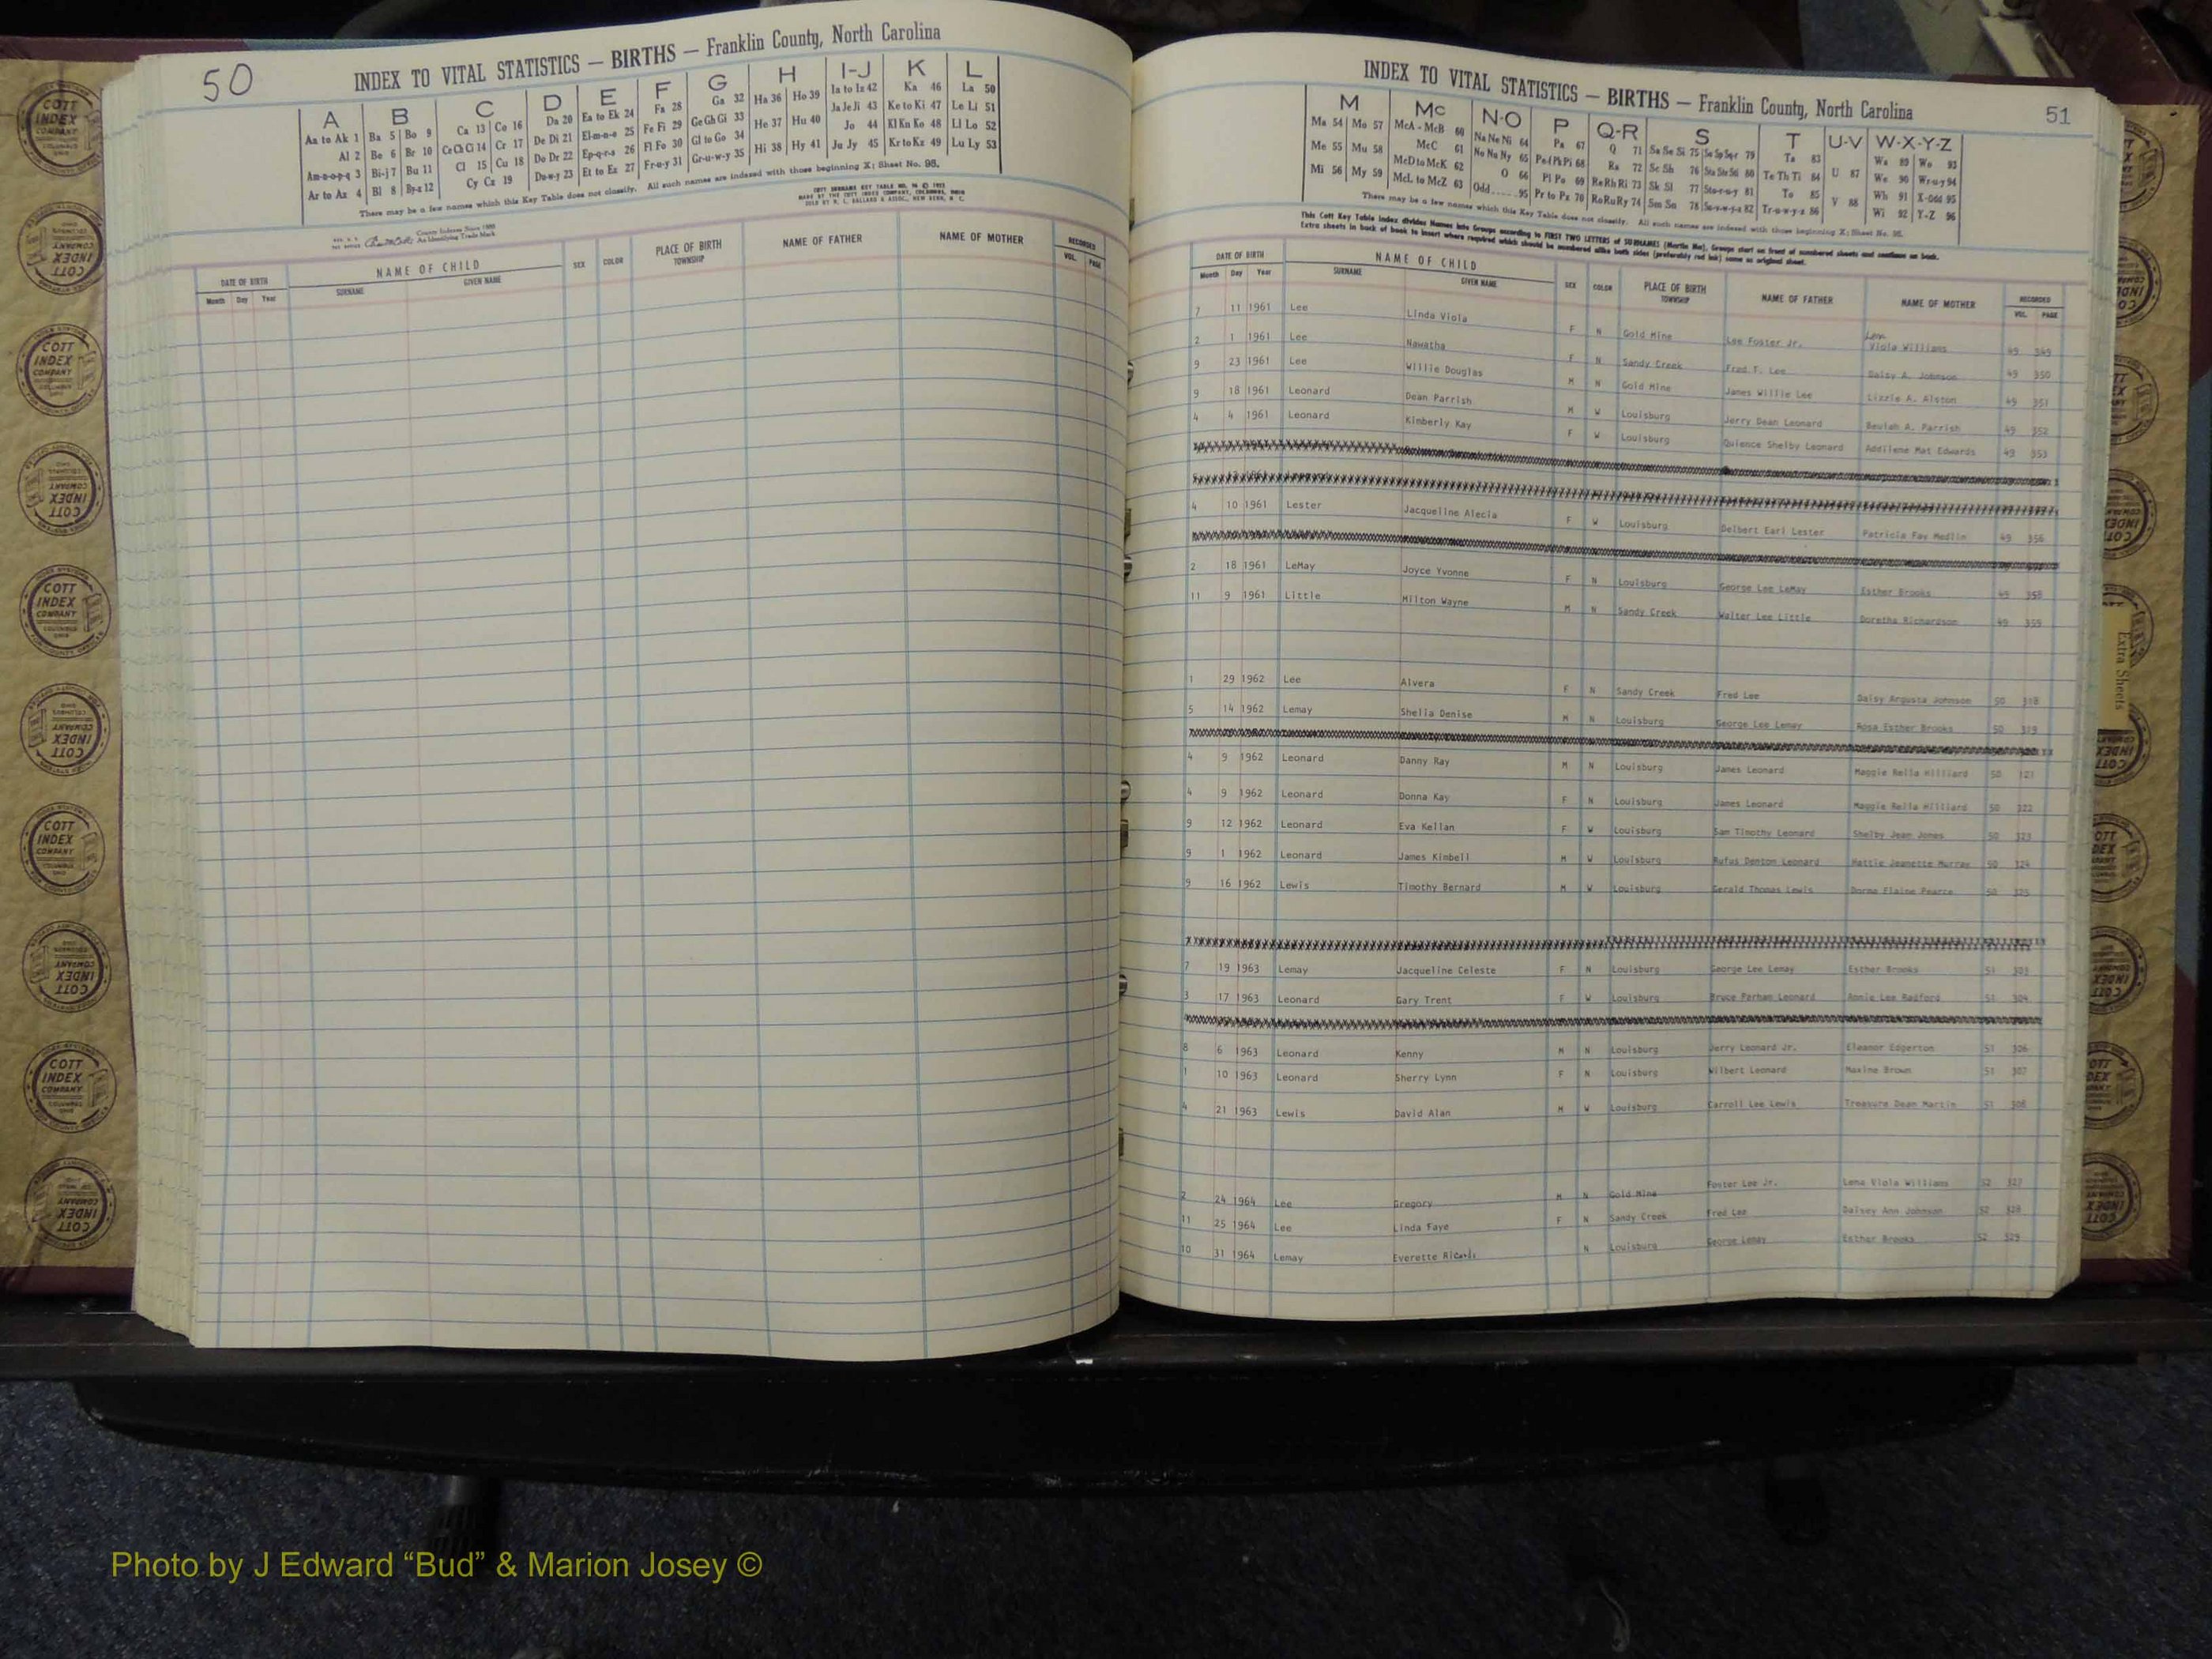 50
INDEX TO VITAL STATISTICS — BIRTHS — Franklin County, North Carolina
A B C D E F G H I-J K L
Aa to Ak 1 Ba 5 Bo 9 Ca 13 Co 16 Da 20 Ea to Ek 24 Fa 28 Ga 32 Ha 36 Ho 39 Ia to Iz 42 Ka 46 La 50
Al 2 Be 6 Br 10 Ce Ch Ci 14 Cr 17 De Di 21 El-m-n-o 25 Fe Fi 29 Ge Gh Gi 33 He 37 Hu 40 Ja Je Ji 43 Ke to Ki 47 Le Li 51
Am-n-o-p-q 3 Bi-j 7 Bu 11 Cl 15 Cu 18 Do Dr 22 Ep-q-r-s 26 Fl Fo 30 Gl to Go 34 Hi 38 Hy 41 Jo 44 Kl Kn Ko 48 Ll Lo 52
Ar to Az 4 Bl 8 By-z 12 Cy Cz 19 Du-w-y 23 Et to Ez 27 Fr-u-y 31 Gr-u-w-y 35 Ju Jy 45 Kr to Kz 49 Lu Ly 53
There may be a few names which this Key Table does not classify. All such names are indexed with those beginning X; Sheet No. 95.
County Indexes Since 1888
An Identifying Trade Mark
DATE OF BIRTH NAME OF CHILD SEX COLOR PLACE OF BIRTH NAME OF FATHER NAME OF MOTHER RECORDED
Month Day Year SURNAME GIVEN NAME TOWNSHIP VOL. PAGE
INDEX TO VITAL STATISTICS — BIRTHS — Franklin County, North Carolina 51
M Mc N-O P Q-R S T U-V W-X-Y-Z
Ma 54 Mo 57 McA - McB 60 Na Ne Ni 64 Pa 67 Q 71 Sa Se Si 75 So Sp Sq-r 79 Ta 83 U 87 Wa 89 Wo 93
Me 55 Mu 58 McC 61 No Nu Ny 65 Pe-f Ph Pi 68 Ra 72 Sc Sh 76 Sta Ste Sti 80 Te Th Ti 84 V 88 We 90 Wr-u-y 94
Mi 56 My 59 McD to McK 62 O 66 Pl Po 69 Re Rh Ri 73 Sk Sl 77 Sto-r-u-y 81 To 85 Wh 91 X-Odd 95
McL to McZ 63 Odd 95 Pr to Pz 70 Ro Ru Ry 74 Sm Sn 78 Su-v-w-y-z 82 Tr-u-w-y-z 86 Wi 92 Y-Z 96
There may be a few names which this Key Table does not classify. All such names are indexed with those beginning X; Sheet No. 95.
This Cott Key Table Index divides Names into Groups according to FIRST TWO LETTERS of SURNAMES (Martin Ma). Groups start on front of numbered sheets and continue on back.
Extra sheets in back of book to insert where required which should be numbered alike both sides (preferably red ink) same as original sheet.
DATE OF BIRTH NAME OF CHILD SEX COLOR PLACE OF BIRTH NAME OF FATHER NAME OF MOTHER RECORDED
Month Day Year SURNAME GIVEN NAME TOWNSHIP VOL. PAGE
7 11 1961 Lee Linda Viola F N Gold Mine Lee Foster Jr. Lena Viola Williams 49 349
2 1 1961 Lee Nawatha F N Sandy Creek Fred F. Lee Daisy A. Johnson 49 350
9 23 1961 Lee Willie Douglas M N Gold Mine James Willie Lee Lizzie A. Alston 49 351
9 18 1961 Leonard Dean Parrish M W Louisburg Jerry Dean Leonard Beulah A. Parrish 49 352
4 4 1961 Leonard Kimberly Kay F W Louisburg Quience Shelby Leonard Addilene Mat Edwards 49 353
4 10 1961 Lester Jacqueline Alecia F W Louisburg Delbert Earl Lester Patricia Fay Medlin 49 356
2 18 1961 LeMay Joyce Yvonne F N Louisburg George Lee LeMay Esther Brooks 49 358
11 9 1961 Little Milton Wayne M N Sandy Creek Walter Lee Little Doretha Richardson 49 359
1 29 1962 Lee Alvera F N Sandy Creek Fred Lee Daisy Argusta Johnson 50 318
5 14 1962 Lemay Shelia Denise M N Louisburg George Lee Lemay Rosa Esther Brooks 50 319
4 9 1962 Leonard Danny Ray M N Louisburg James Leonard Maggie Rella Hilliard 50 321
4 9 1962 Leonard Donna Kay F N Louisburg James Leonard Maggie Rella Hilliard 50 322
9 12 1962 Leonard Eva Kellan F W Louisburg Sam Timothy Leonard Shelby Jean Jones 50 323
9 1 1962 Leonard James Kimbell M W Louisburg Rufus Denton Leonard Hattie Jeanette Murray 50 324
9 16 1962 Lewis Timothy Bernard M W Louisburg Gerald Thomas Lewis Dorma Elaine Pearce 50 325
7 19 1963 Lemay Jacqueline Celeste F N Louisburg George Lee Lemay Esther Brooks 51 303
3 17 1963 Leonard Gary Trent F W Louisburg Bruce Parham Leonard Annie Lee Radford 51 304
8 6 1963 Leonard Kenny M N Louisburg Jerry Leonard Jr. Eleanor Edgerton 51 306
1 10 1963 Leonard Sherry Lynn F N Louisburg Wilbert Leonard Maxine Brown 51 307
4 21 1963 Lewis David Alan M W Louisburg Carroll Lee Lewis Treasure Dean Martin 51 308
2 24 1964 Lee Gregory M N Gold Mine Foster Lee Jr. Lena Viola Williams 52 327
11 25 1964 Lee Linda Faye F N Sandy Creek Fred Lee Daisey Ann Johnson 52 328
10 31 1964 Lemay Everette Ricardi N Louisburg George Lemay Esther Brooks 52 329
Extra Sheets
COTT INDEX COMPANY
Photo by J Edward “Bud” & Marion Josey ©